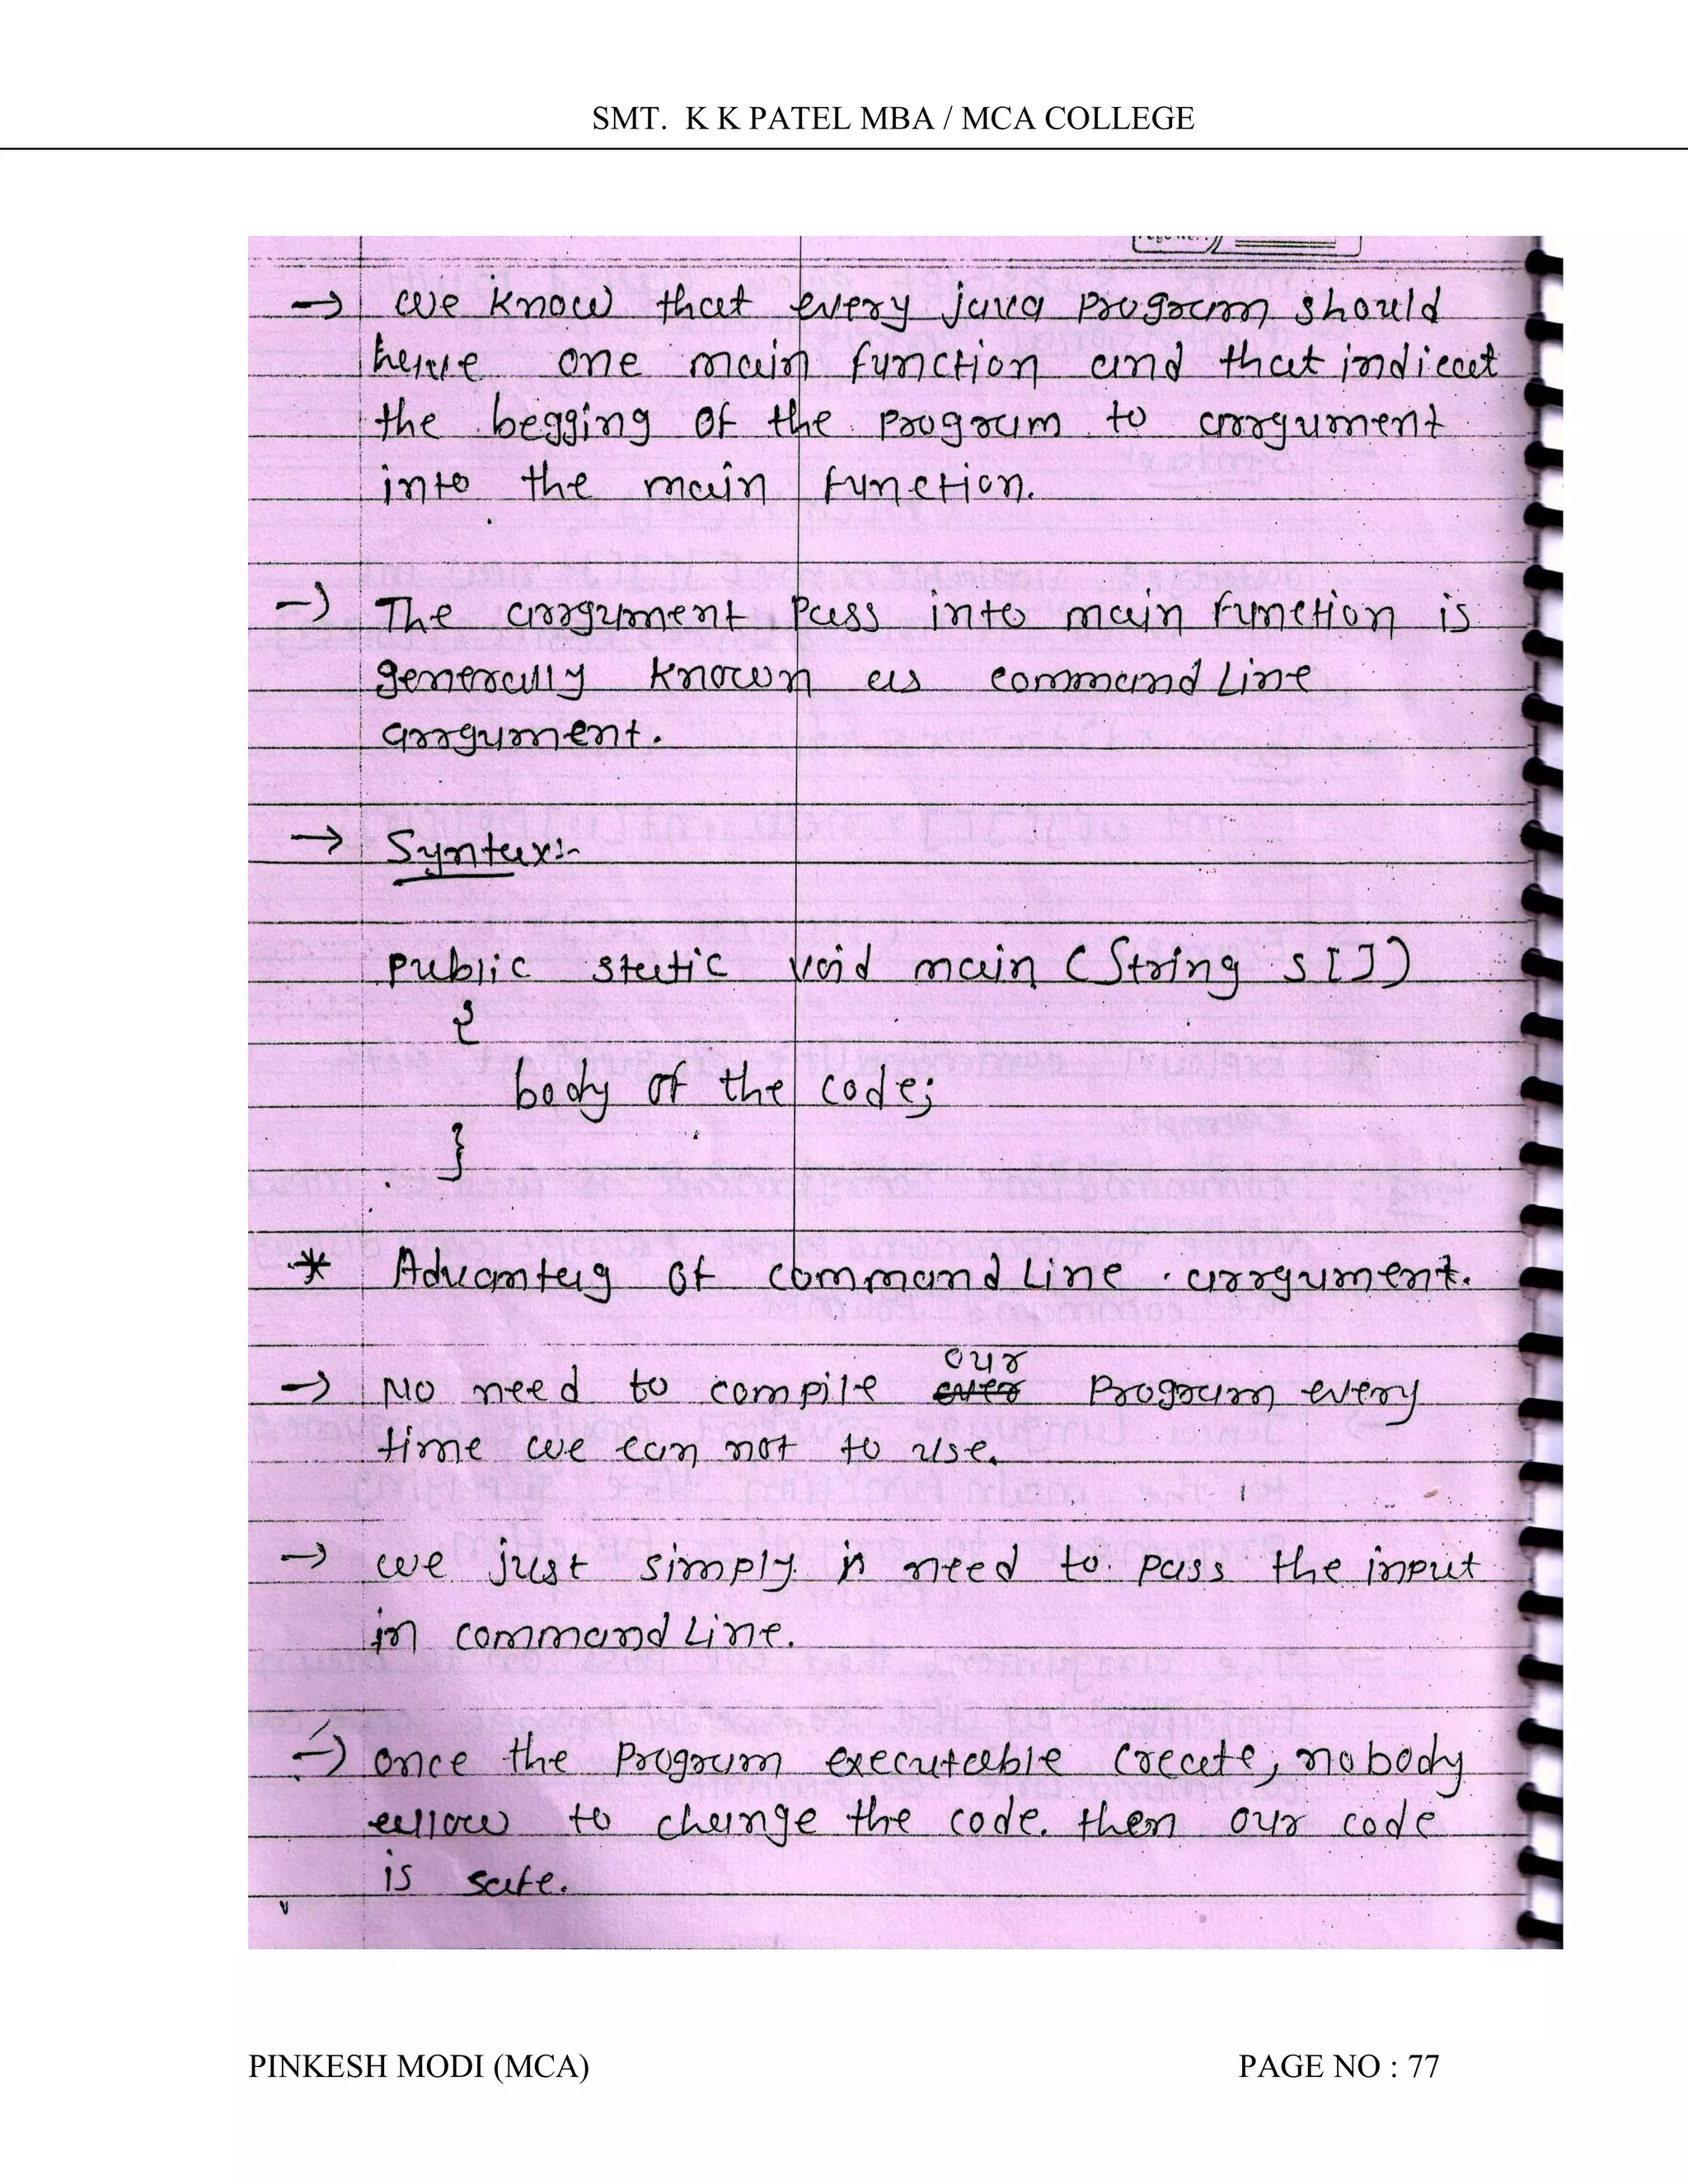 SMT. K K PATEL MBA / MCA COLLEGE
→ we know that every java program should
have one main function and that indicat
the begging of the program to arrgument
into the main function.
→ The arrgument pass into main function is
generally known as command Line
arrgument.
→ Syntax:-
public static void main (String s[])
{
body of the code;
}
* Advantag of command Line arrgument.
our
→ No need to compile ever program every
time we can not to use.
→ we just simply n need to pass the input
in command Line.
→ once the program executable create, nobody
allow to change the code. then our code
is safe.
PINKESH MODI (MCA) PAGE NO : 77